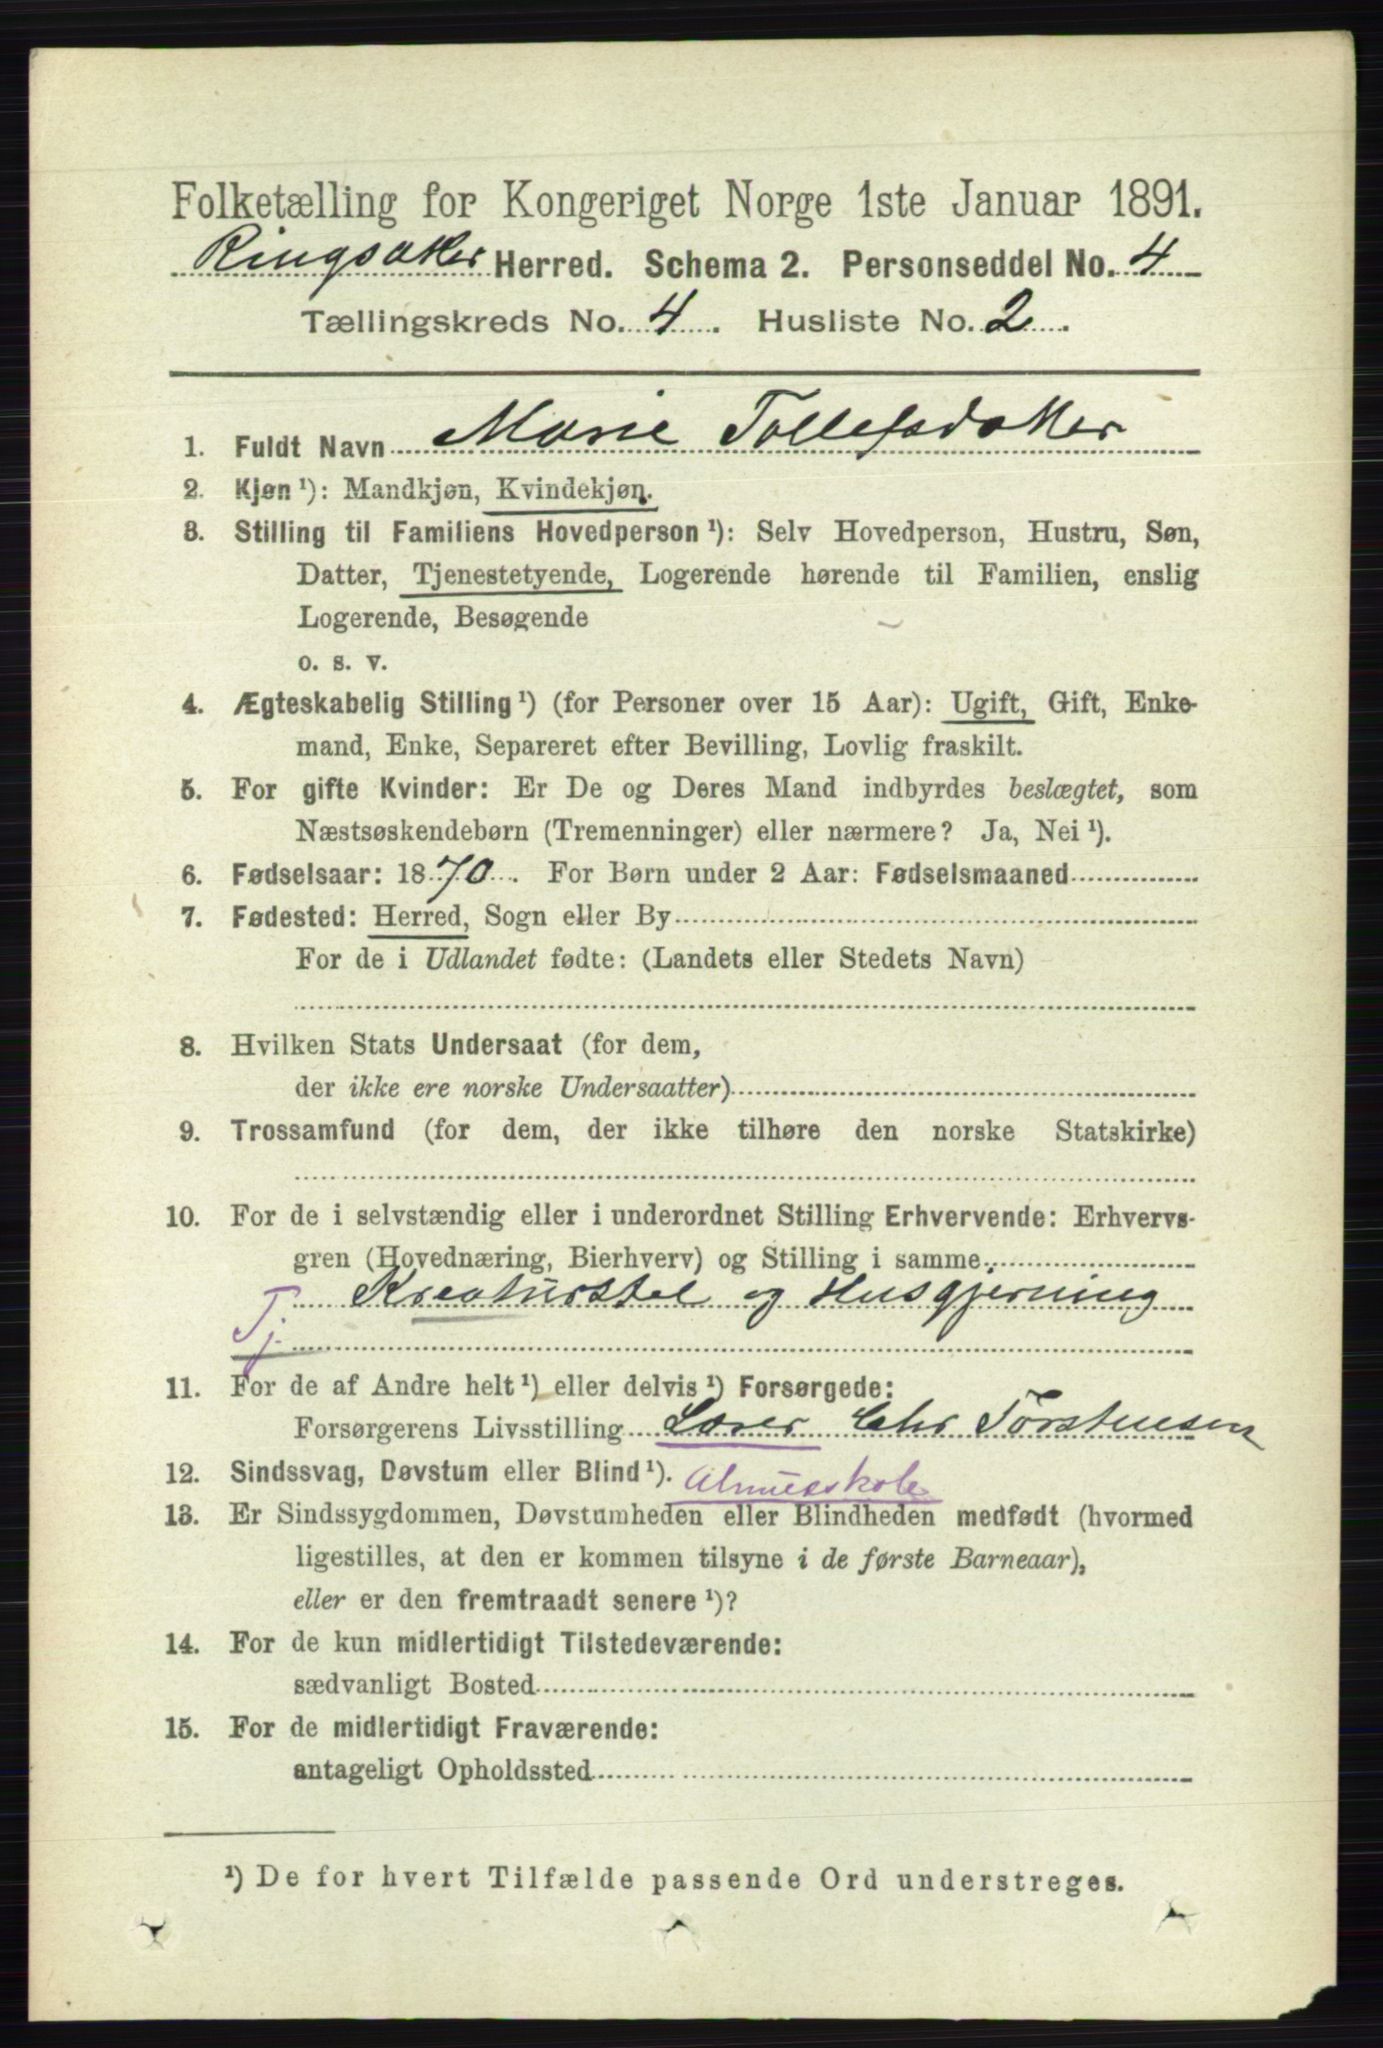 Folketælling for Kongeriget Norge 1ste Januar 1891.
Ringsaker Herred. Schema 2. Personseddel No. 4
Tællingskreds No. 4. Husliste No. 2.
1. Fuldt Navn Marie Tollefsdatter
2. Kjøn ¹): Mandkjøn, Kvindekjøn.
3. Stilling til Familiens Hovedperson ¹): Selv Hovedperson, Hustru, Søn,
Datter, Tjenestetyende, Logerende hørende til Familien, enslig
Logerende, Besøgende
o. s. v.
4. Ægteskabelig Stilling ¹) (for Personer over 15 Aar): Ugift, Gift, Enke-
mand, Enke, Separeret efter Bevilling, Lovlig fraskilt.
5. For gifte Kvinder: Er De og Deres Mand indbyrdes beslægtet, som
Næstsøskendebørn (Tremenninger) eller nærmere? Ja, Nei ¹).
6. Fødselsaar: 1870. For Børn under 2 Aar: Fødselsmaaned
7. Fødested: Herred, Sogn eller By
For de i Udlandet fødte: (Landets eller Stedets Navn)
8. Hvilken Stats Undersaat (for dem,
der ikke ere norske Undersaatter)
9. Trossamfund (for dem, der ikke tilhøre den norske Statskirke)
10. For de i selvstændig eller i underordnet Stilling Erhvervende: Erhvervs-
gren (Hovednæring, Bierhverv) og Stilling i samme.
Kreaturstel og Husgjerning
Tj.
11. For de af Andre helt ¹) eller delvis ¹) Forsørgede:
Forsørgerens Livsstilling Lærer Chr Torstensen
12. Sindssvag, Døvstum eller Blind ¹). Almueskole
13. Er Sindssygdommen, Døvstumheden eller Blindheden medfødt (hvormed
ligestilles, at den er kommen tilsyne i de første Barneaar),
eller er den fremtraadt senere ¹)?
14. For de kun midlertidigt Tilstedeværende:
sædvanligt Bosted
15. For de midlertidigt Fraværende:
antageligt Opholdssted
¹) De for hvert Tilfælde passende Ord understreges.